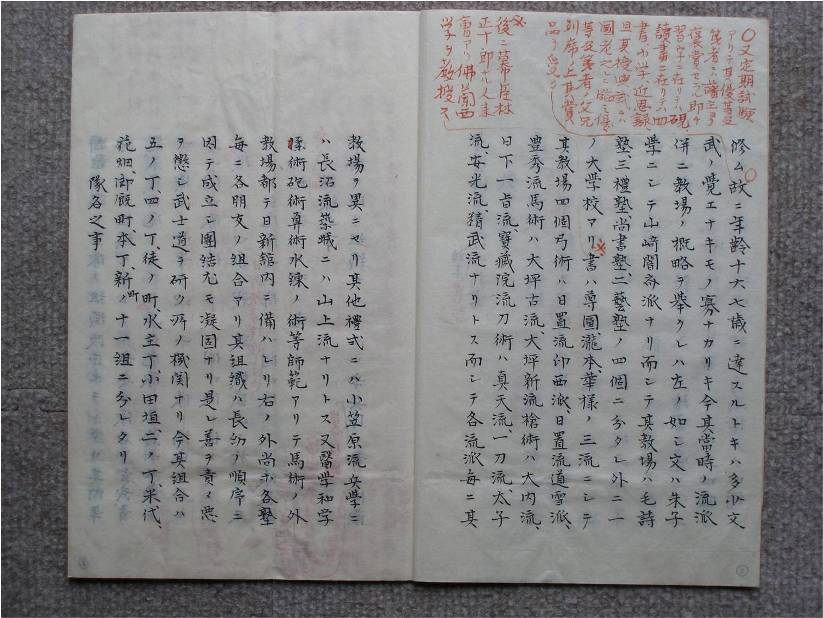 〇又定期試験
アリテ其ノ優等及
等者ニハ藩主ヨリ
褒賞セラル即チ
習字ニ在リテハ硯、
讀書ニ在リテハ四
書小学近思録、
且其授與式ニハ
國老之ニ臨ミ優
等及等者ノ父兄
列席ノ上其賞
品ヲ受ク
後ニ幕臣林
正十郎ナル人来
會アリ佛蘭西
学ヲ教授ス
修ム故ニ年齢十六七歳ニ達スルトキハ多少文
武ノ覺エナキモノ寡ナカリキ今其當時ノ流派
併ニ教場ノ概略ヲ舉クレハ左ノ如シ文ハ朱子
學ニシテ山﨑闇斎派ナリ而シテ其教場ハ毛詩
塾、三禮塾、尚書塾、二藝塾ノ四個ニ分タレ外ニ一
ノ大學校アリ書ハ尊圓瀧本、華様ノ三流ニシテ
其教場四個弓術ハ日置流印西派、日置流道雪派、
豊秀流馬術ハ大坪古流、大坪新流槍術ハ大内流、
日下一旨流、寳蔵院流刀術ハ真天流、一刀流、太子
流、安光流、精武流ナリトス而シテ各流派毎ニ其
教場ヲ異ニセリ其他禮式ニハ小笠原流兵學ニ
ハ長沼流築城ニハ山上流ナリトス又醫学和学
柔術砲術専術水練ノ術等師範アリテ馬術ノ外
教場都テ日新舘内ニ備ハレリ右ノ外尚ホ各塾
毎ニ各朋友ノ組合アリ其組織ハ長幼ノ順序ニ
因テ成立シ團結尤モ凝固ナリ是レ善ヲ責メ悪
ヲ懲シ武士道ヲ研ク所ノ機関ナリ今其組合ハ
五ノ丁、四ノ丁、徒ノ町、水主丁、小田垣、二ノ丁、米代、
花畑、御厩町、本丁、新町ノ十一組ニ分レタリ
隊名之事